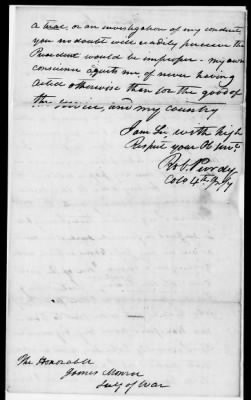 a trial, or an investigation of my conduct,
you no doubt will readily perceive the
President would be improper - my own
conscience aquits me of never having
acted otherwise than for the good of
the service, and my country
I am Sir with high
Respect your Ob Serv.t
Rob. Purdy
Colo 4th Infy
The Honorable
James Monroe
Secy of War